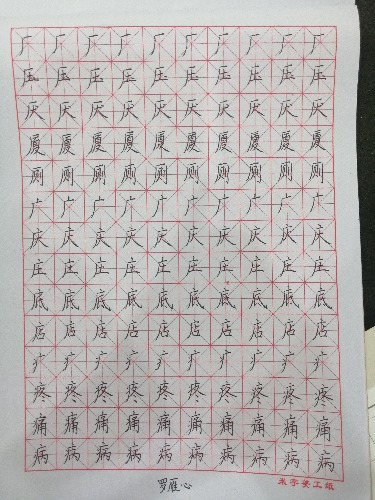 厂 厂 厂 厂 厂 厂 厂 厂 厂 厂
压 压 压 压 压 压 压 压 压 压
厌 厌 厌 厌 厌 厌 厌 厌 厌 厌
厦 厦 厦 厦 厦 厦 厦 厦 厦 厦
厕 厕 厕 厕 厕 厕 厕 厕 厕 厕
广 广 广 广 广 广 广 广 广 广
庆 庆 庆 庆 庆 庆 庆 庆 庆 庆
庄 庄 庄 庄 庄 庄 庄 庄 庄 庄
底 底 底 底 底 底 底 底 底 底
店 店 店 店 店 店 店 店 店 店
疒 疒 疒 疒 疒 疒 疒 疒 疒 疒
疼 疼 疼 疼 疼 疼 疼 疼 疼 疼
痛 痛 痛 痛 痛 痛 痛 痛 痛 痛
病 病 病 病 病 病 病 病 病 病
罗雁心